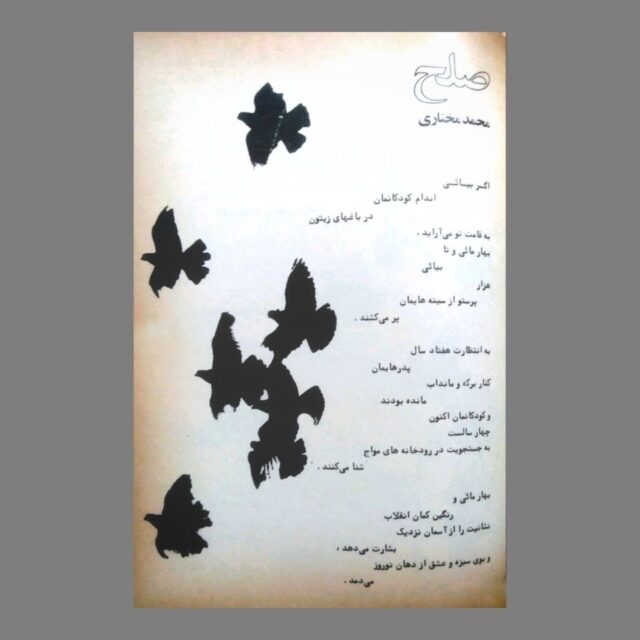 صلح
محمد مختاری
اگر بیائی
اندام کودکانمان
در باغهای زیتون
به قامت تو می‌آراید .
بهار مائی و تا
بیائی
هزار
پرستو از سینه هایمان
پر می‌کشند .
به انتظارت هفتاد سال
پدرهایمان
کنار برکه و مانداب
مانده بودند
و کودکانمان اکنون
چهار سالست
به جستجویت در رودخانه های مواج
شنا می‌کنند .
بهار مائی و
رنگین کمان انقلاب
نشانیت را از آسمان نزدیک
بشارت می‌دهد ،
و بوی سبزه و عشق از دهان نوروز
می‌دمد .